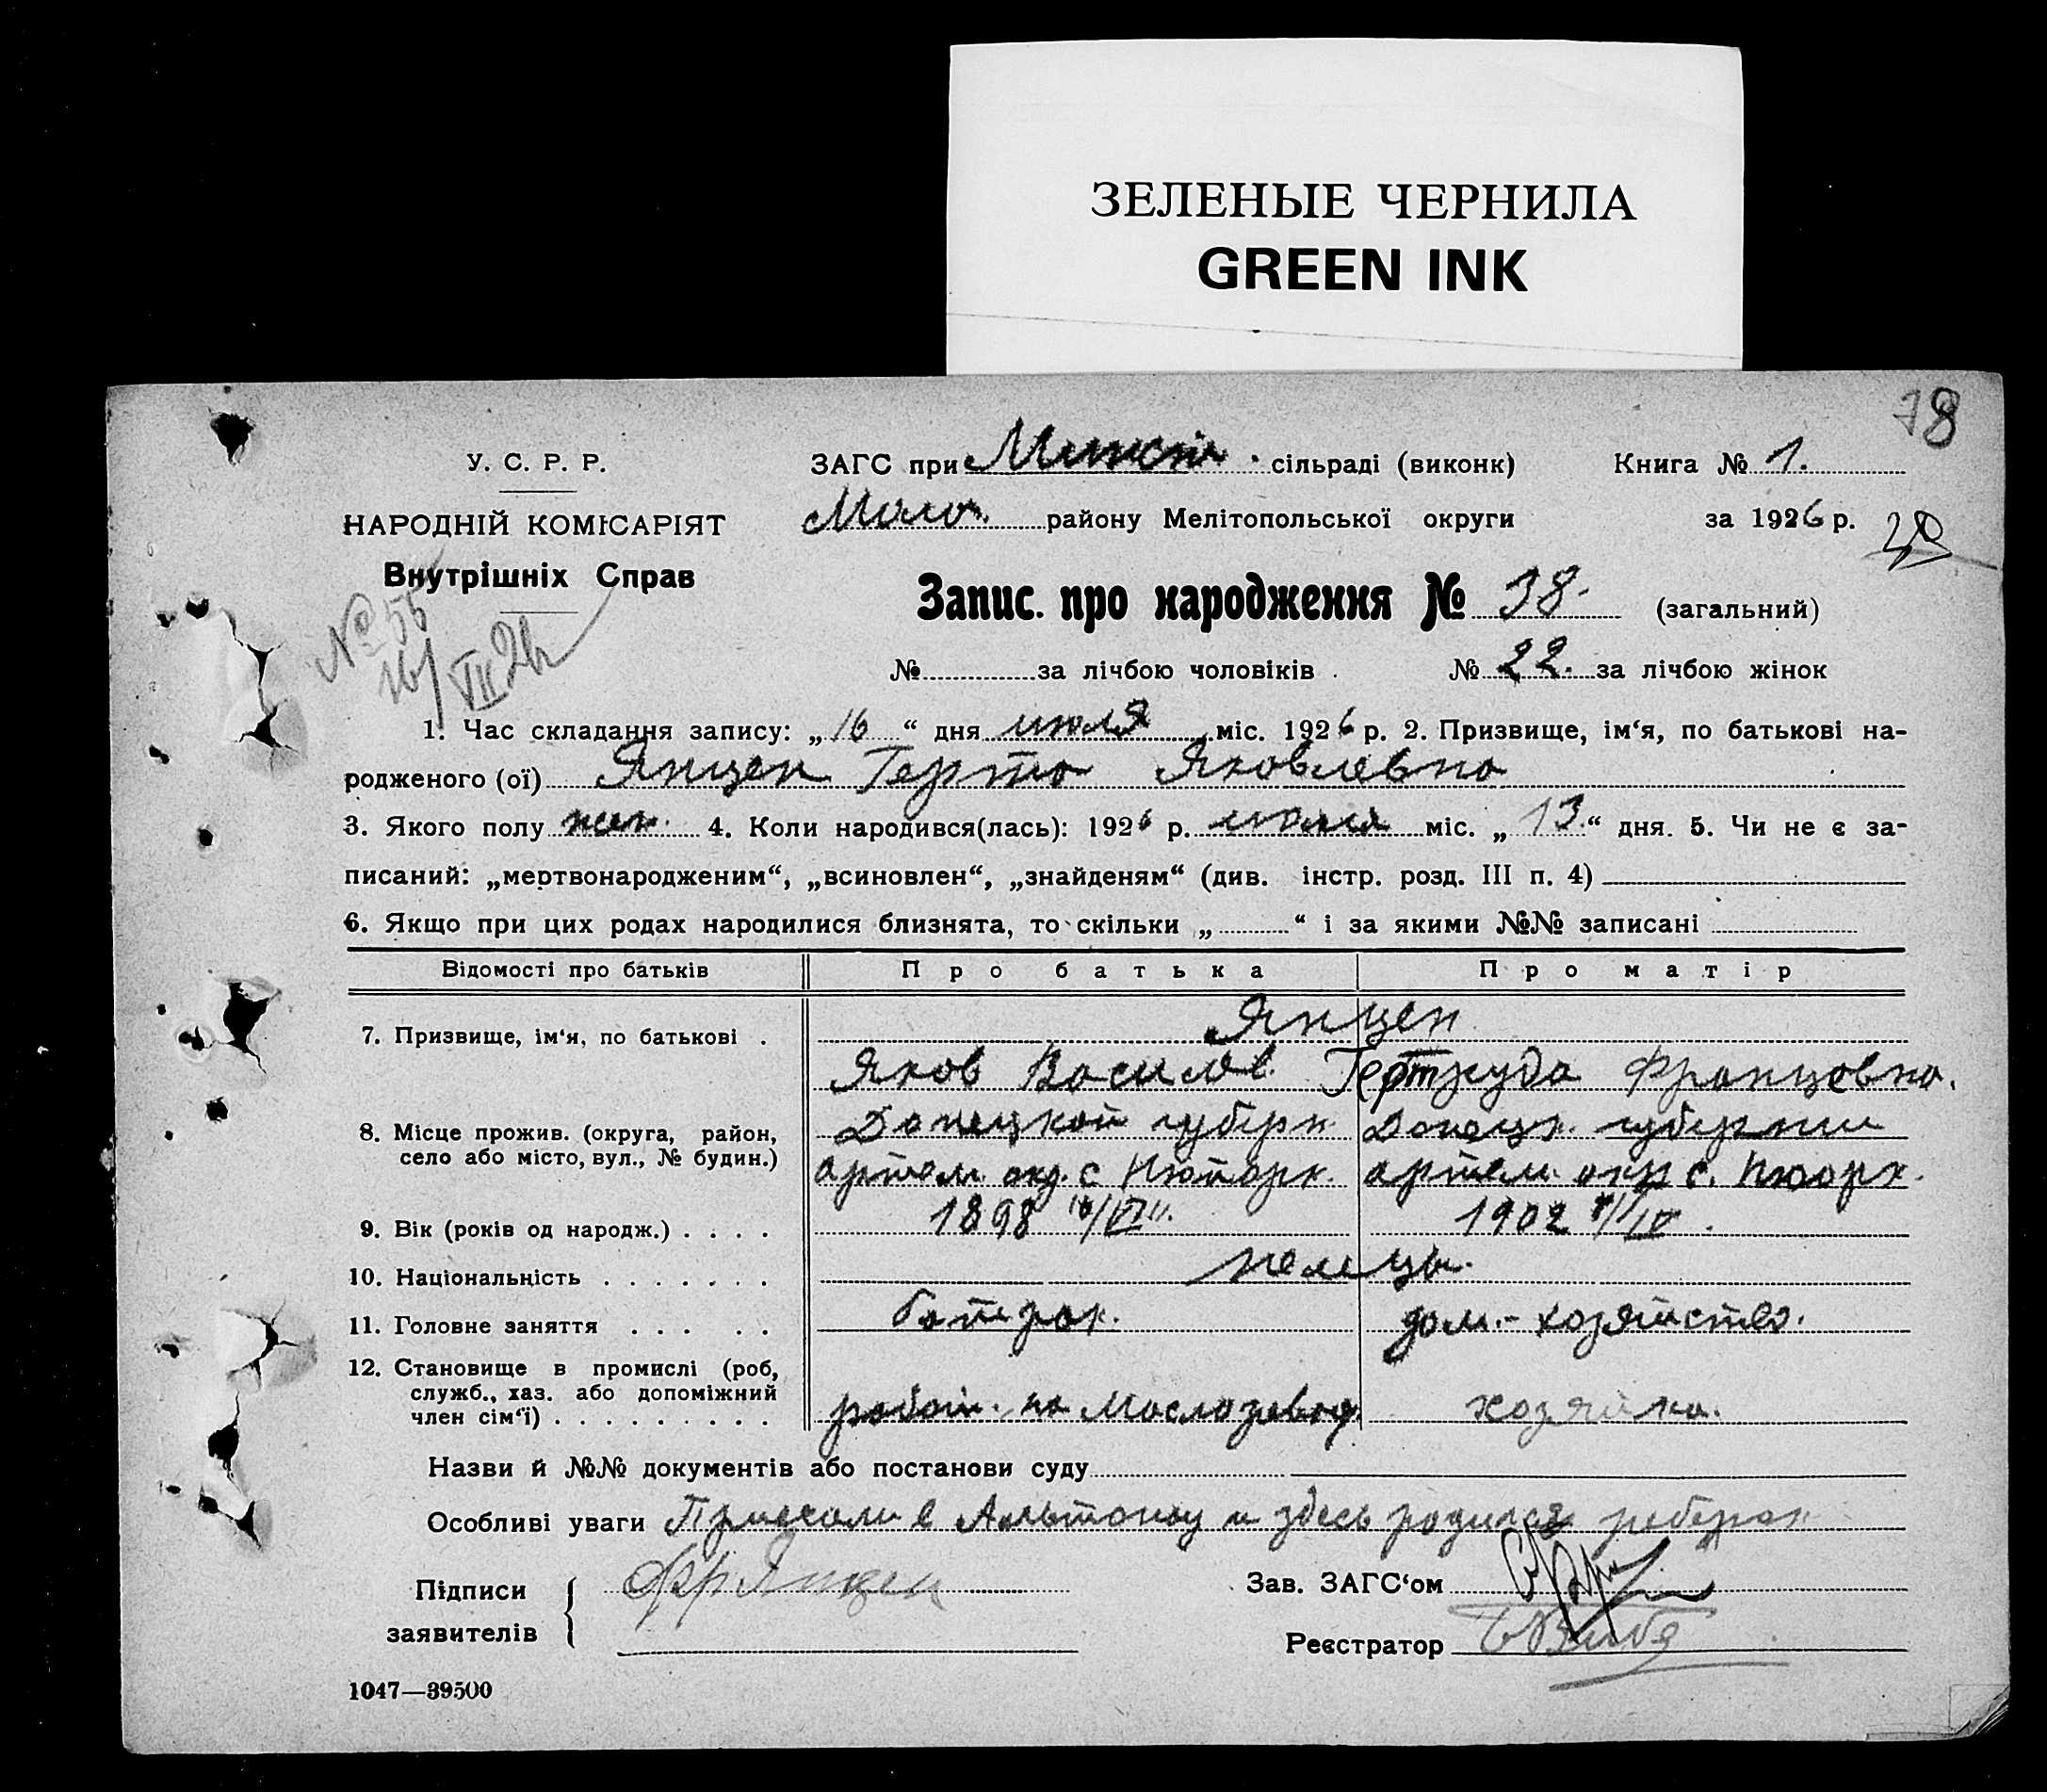 ЗЕЛЕНЫЕ ЧЕРНИЛА
GREEN INK
78
У. С. Р. Р.
ЗАГС при сільраді (виконк) Книга № 1.
НАРОДНІЙ КОМІСАРІЯТ
Моло. району Мелітопольської округи за 1926 р.
Внутрішніх Справ
Запис. про народження № 38. (загальний)
№ 55
16/VII 26
№ за лічбою чоловіків № 22. за лічбою жінок
1. Час складання запису: „16“ дня июля міс. 1926 р. 2. Призвище, ім‘я, по батькові на-
родженого (ої) Янцен Герта Яковлевна
3. Якого полу жен. 4. Коли народився(лась): 1926 р. июля міс. „13.“ дня. 5. Чи не є за-
писаний: „мертвонародженим“, „всиновлен“, „знайденям“ (див. інстр. розд. III п. 4)
6. Якщо при цих родах народилися близнята, то скільки „ “ і за якими №№ записані
Відомості про батьків Про батька Про матір
7. Призвище, ім‘я, по батькові . Янцен
Яков Василев. Гертруда Францовна.
8. Місце прожив. (округа, район, село або місто, вул., № будин.) Донецкой губерн. Донецк. губернии
артем. окр. с. Нюйорк. артем. окр с. Нюорк.
9. Вік (років од народж.) . . . . 1898 1902
10. Національність . . . . . . . немцы.
11. Головне заняття . . . . . батрак. дом.-хозяйство.
12. Становище в промислі (роб, служб., хаз. або допоміжний член сім‘ї) . . . . . . . . . работ. на маслозавод. хозяйка.
Назви й №№ документів або постанови суду
Особливі уваги Приехали в Альтонау и здесь родился ребенок
Підписи заявителів Янцен
Зав. ЗАГС‘ом
Реєстратор
1047—39500